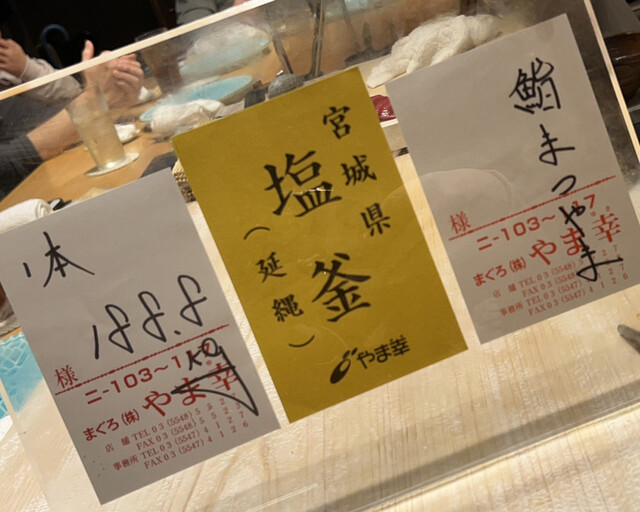 一本
188.8
様
ニ-103~1
まぐろ(株)やま幸
店舗 TEL 03 (5548)
FAX 03 (5548)
事務所 TEL 03 (5547) 4126
FAX 03 (5547) 4126
宮城県
塩釜
(延縄)
やま幸
鮨まつやま
様
ニ-103~ 7
まぐろ(株)やま幸
店舗 TEL 03 (5548)
FAX 03 (5548)
事務所 TEL 03 (5547)
FAX 03 (5547) 4120